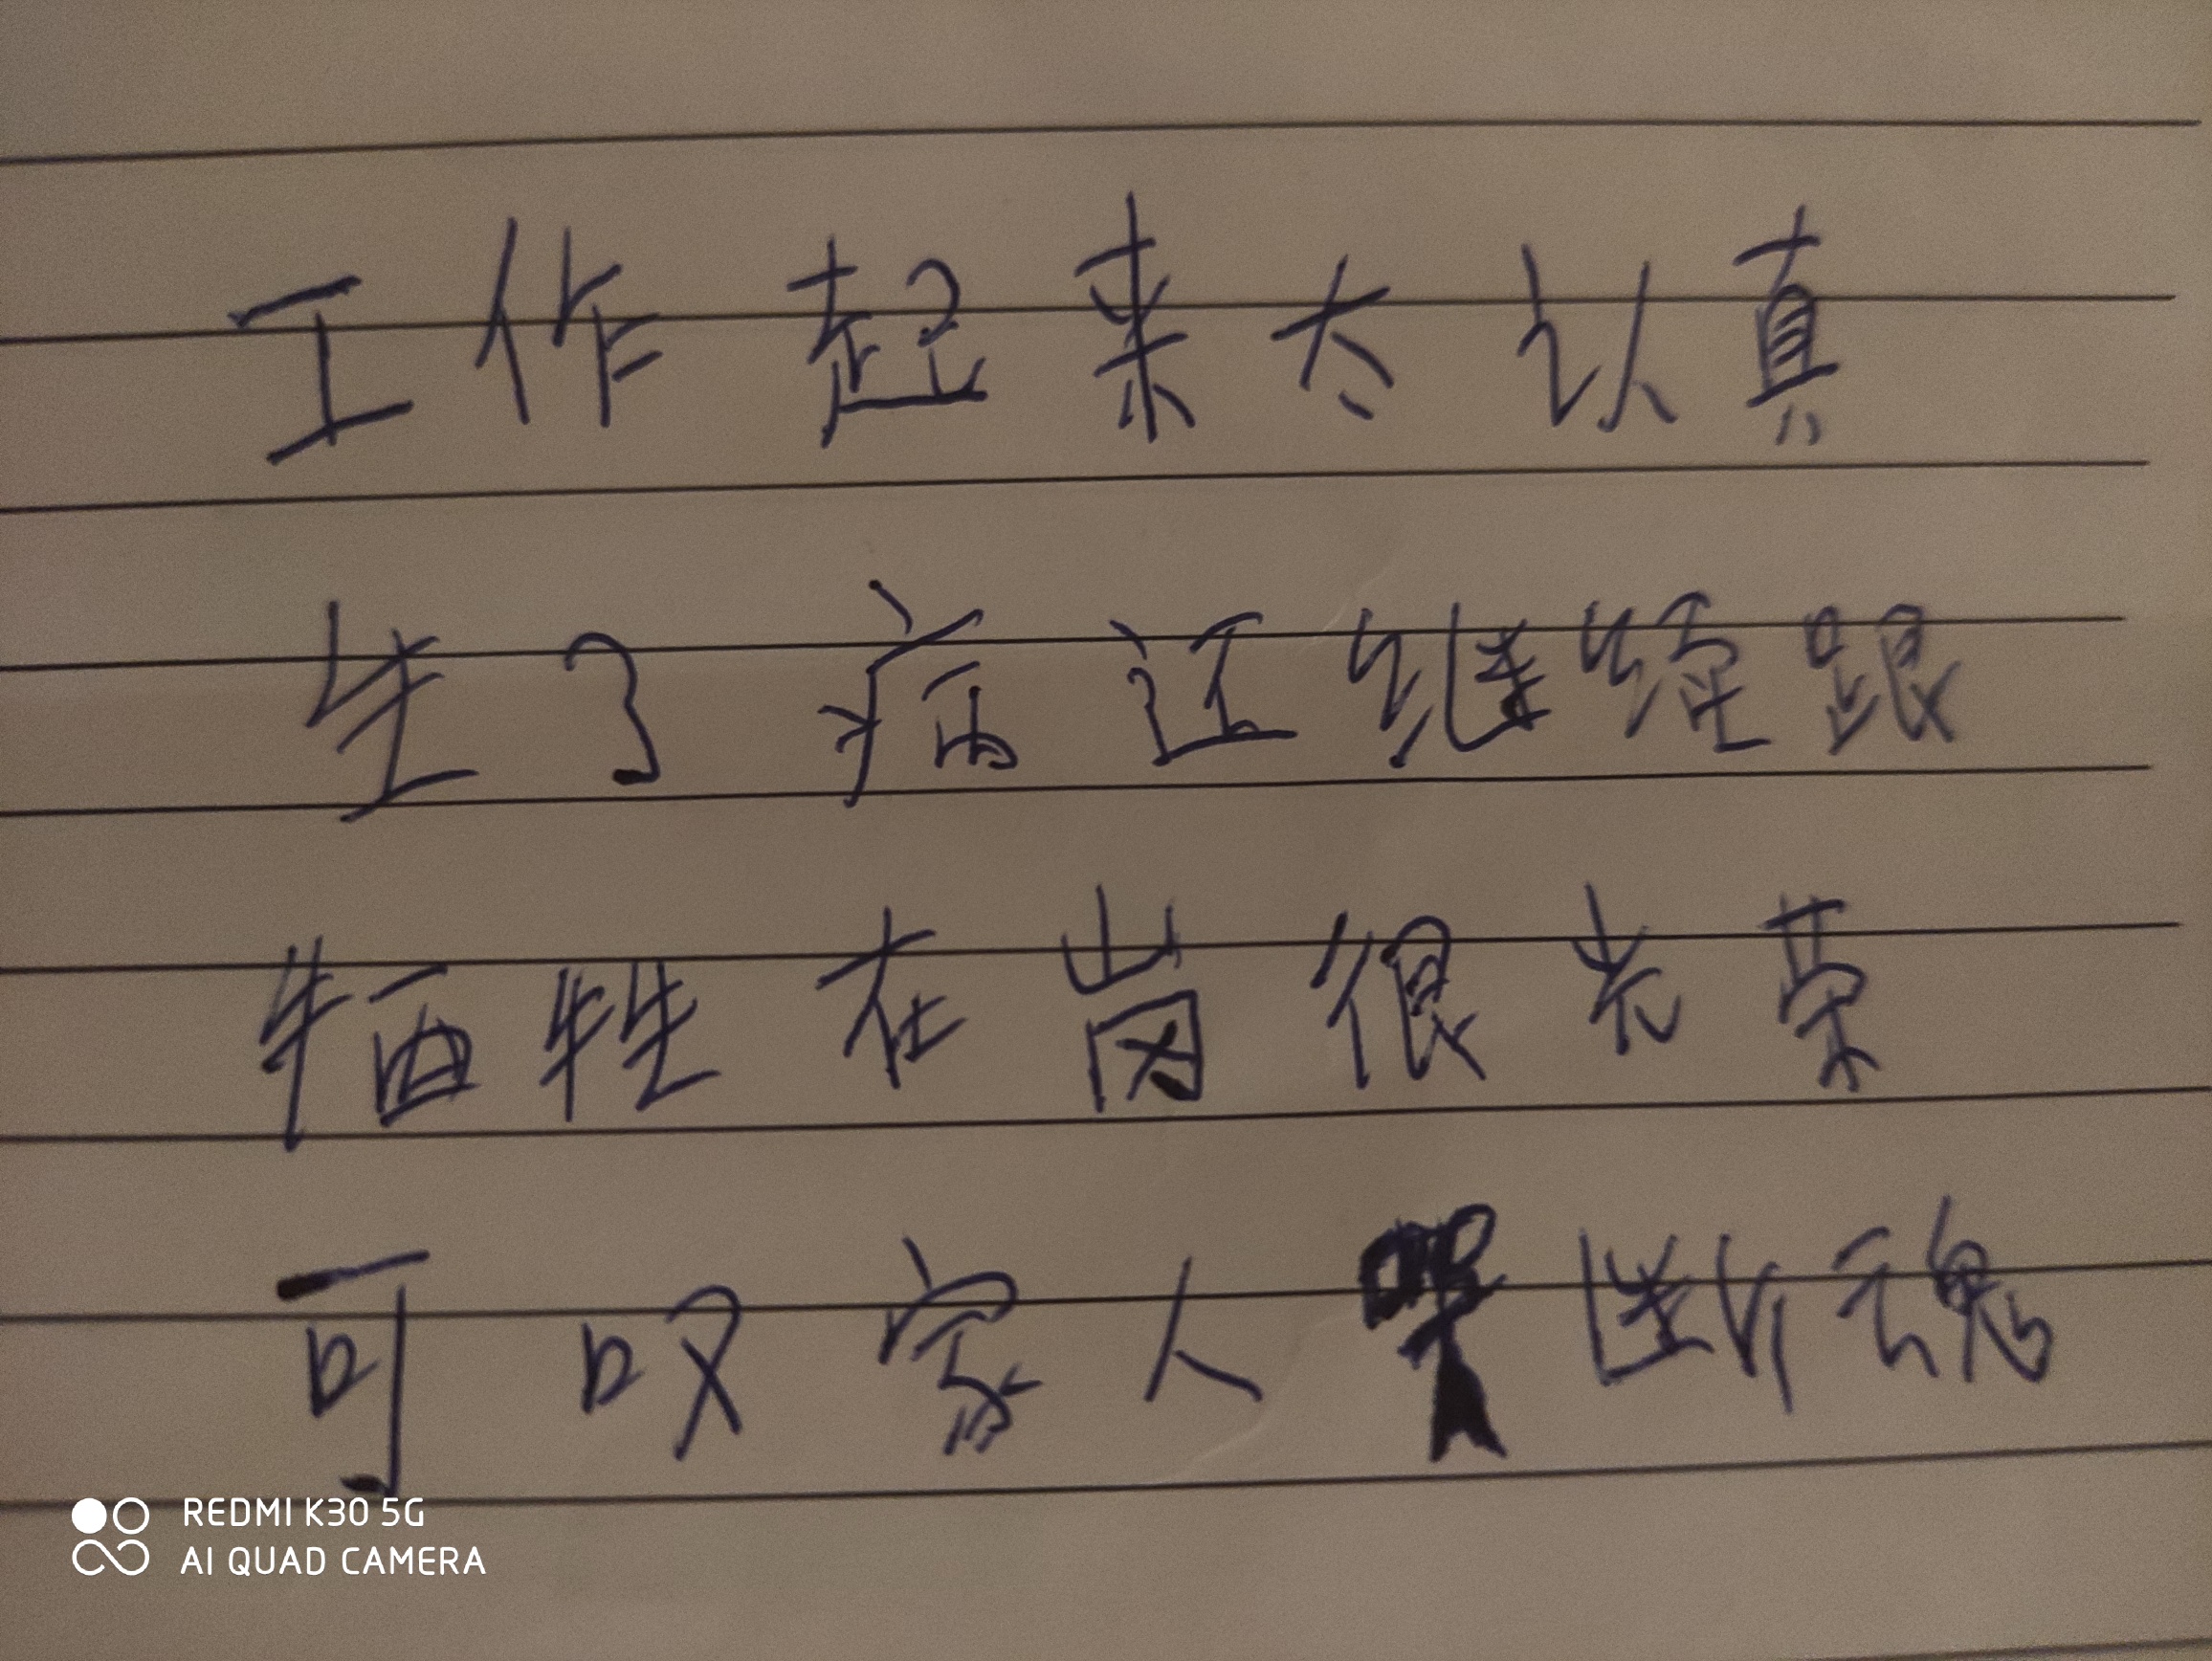 工作起来太认真
生了病还继续跟
牺牲在岗很光荣
可叹家人哭断魂
REDMI K30 5G
AI QUAD CAMERA